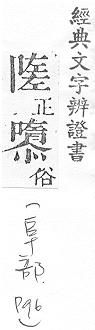 經典文字辨證書
正
俗
(阜部. P96)